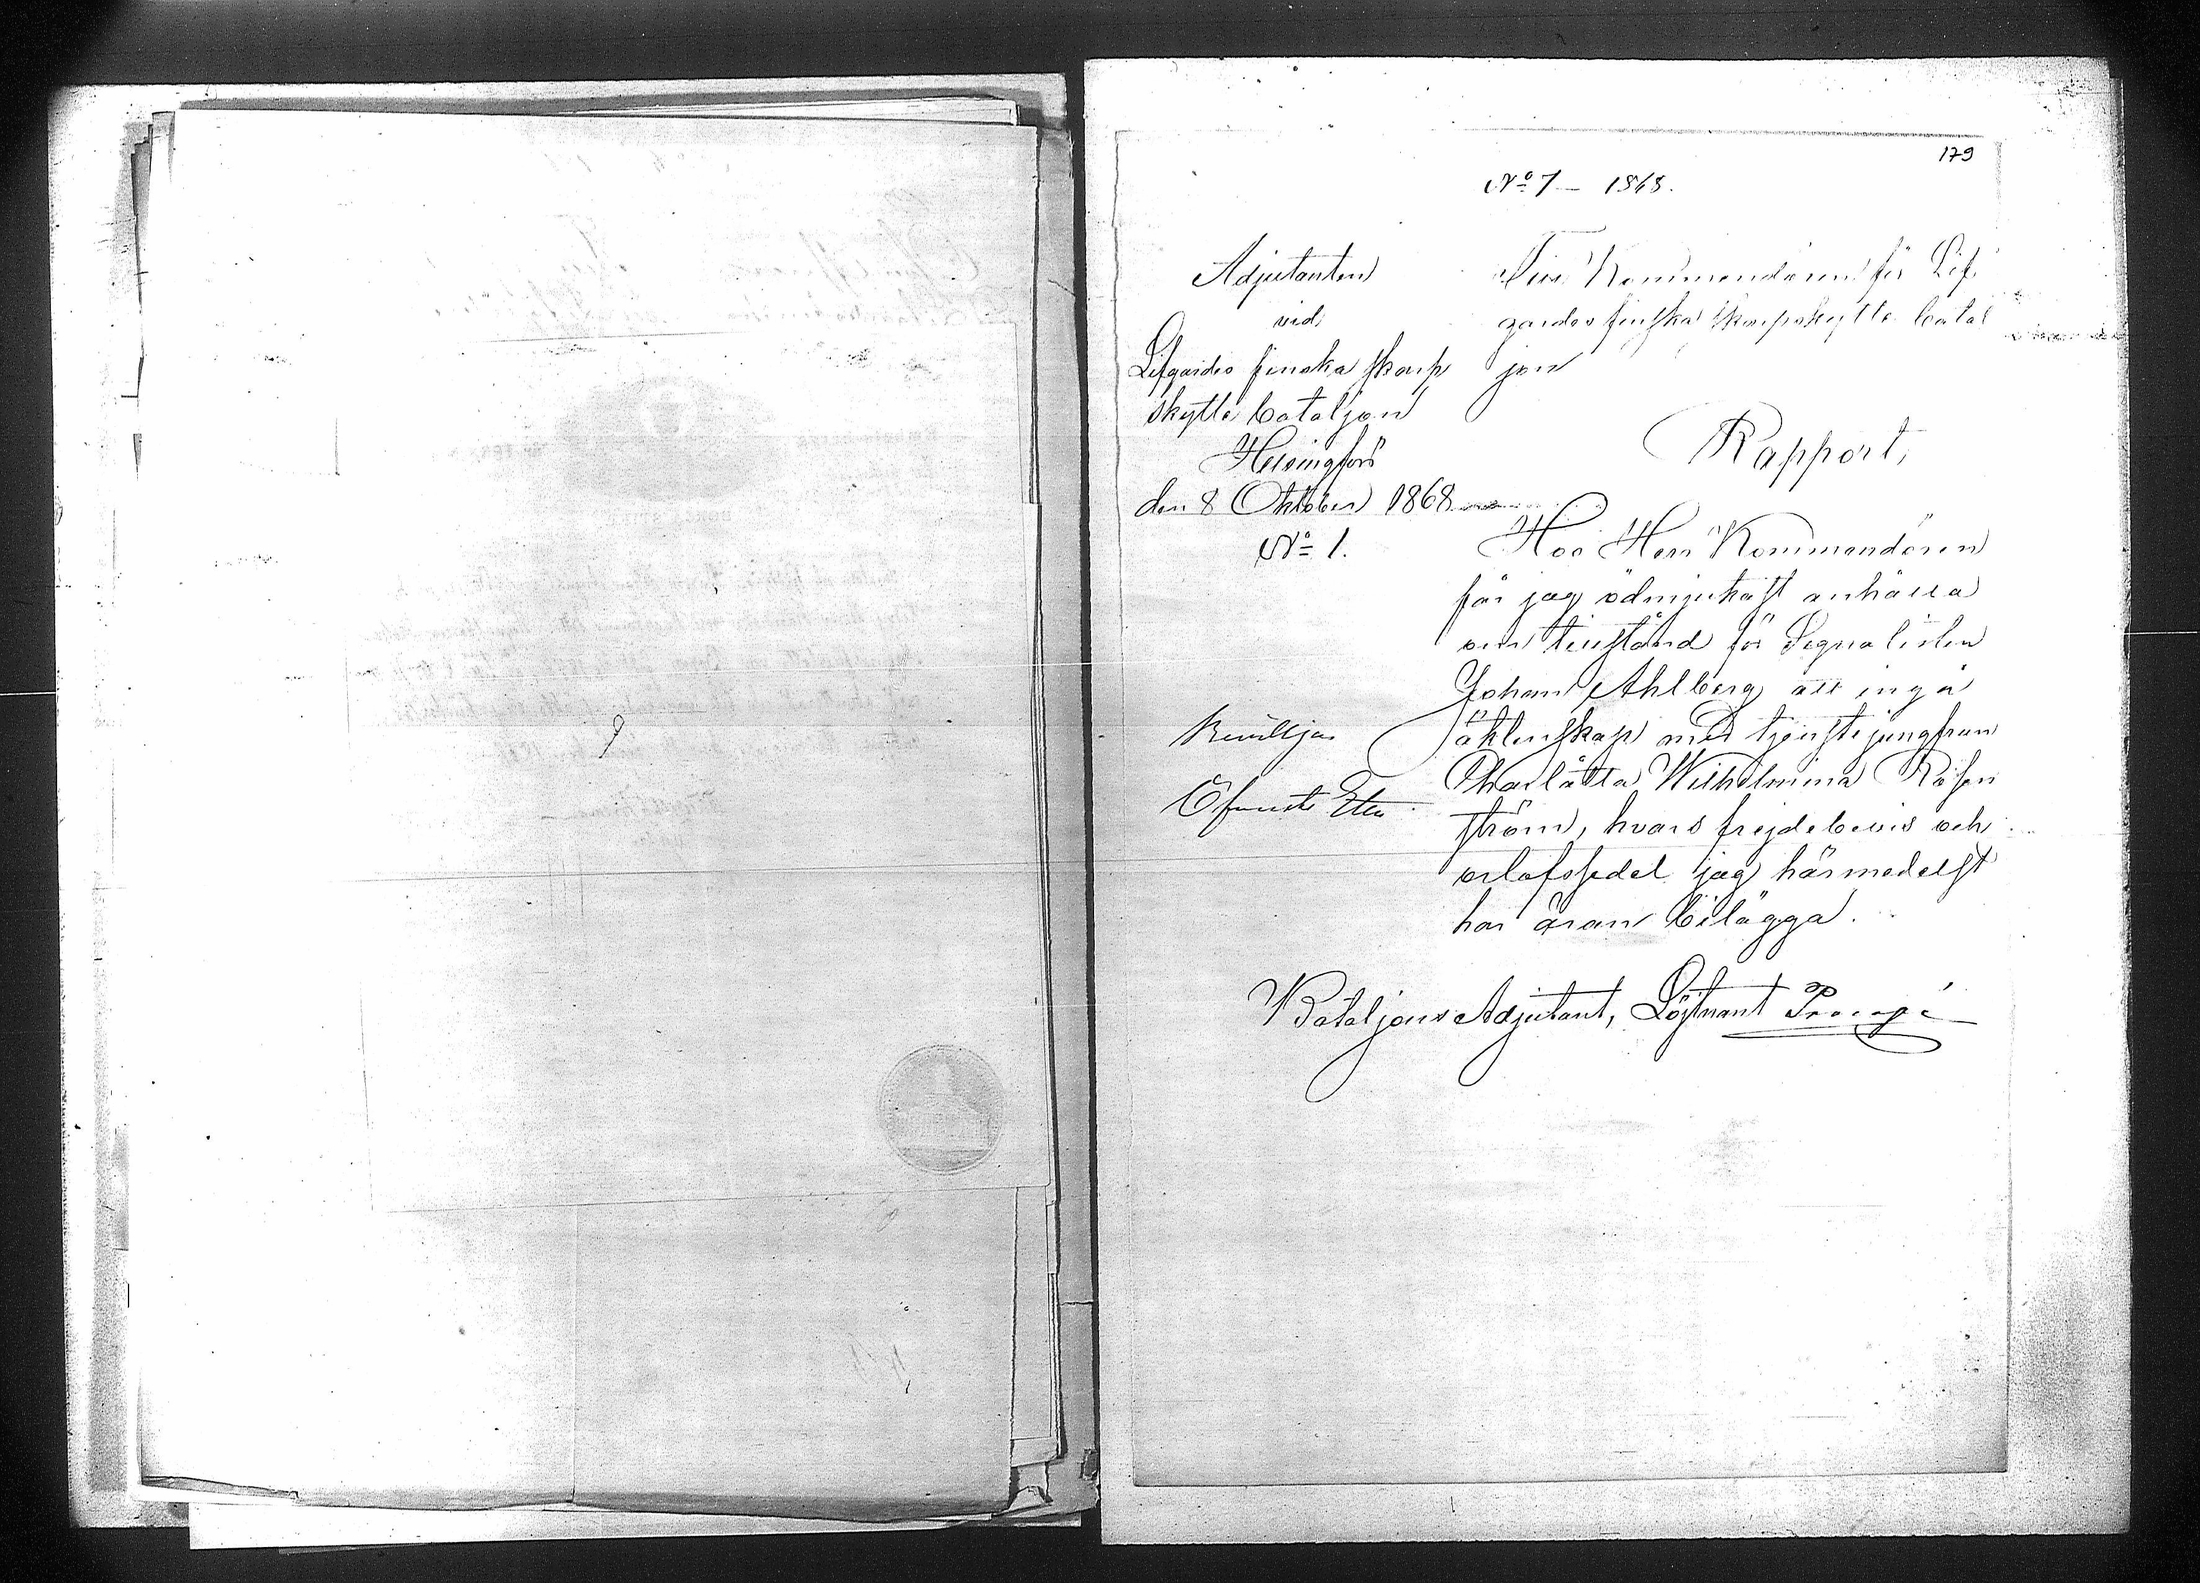 179
No 7 – 1868.
Adjutanten
vid
Lifgardes finska skarp
skytte bataljon
Helsingfors
den 8 Oktober 1868
No 1.
Till Kommendören för Lif
gardes finska skarpskytte batal
jon
Rapport,
Hos Herr Kommendören
får jag ödmjukast anhålla
om tillstånd för Signalisten
Johan Ahlberg att ingå
äktenskap med tjenstejungfrun
Charlåtta Wilhelmina Råsen
ström, hvars frejdebevis och
orlofssedel jag härmedelst
har äran bilägga.
Beviljas
Öfverste Etter
Bataljons Adjutant, Löjtnant Procopé